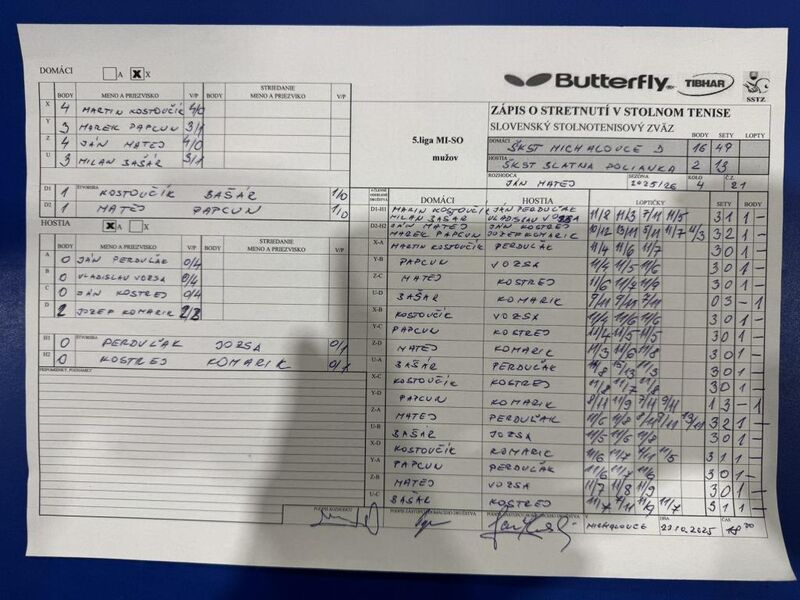 DOMÁCI A X X
Butterfly TIBHAR SSTZ
STRIEDANIE
BODY MENO A PRIEZVISKO V/P BODY MENO A PRIEZVISKO V/P
X 4 MARTIN KOSTOVČÍK 4/0
Y 3 MAREK PAPCUN 3/1
Z 4 JÁN MATEJ 4/0
U 3 MILAN BAŠÁR 3/1
D1 1 ŠTVORHRA KOSTOVČÍK BAŠÁR 1/0
D2 1 MATEJ PAPCUN 1/0
HOSTIA X A X
STRIEDANIE
BODY MENO A PRIEZVISKO V/P BODY MENO A PRIEZVISKO V/P
A 0 JÁN PERDUĽAK 0/4
B 0 VLADISLAV VOZSA 0/4
C 0 JÁN KOSTREJ 0/4
D 2 JOZEF KOMARIK
H1 0 ŠTVORHRA PERDUĽAK JOZSA 0/1
H2 0 KOSTREJ KOMARIK 0/1
PRIPOMIENKY, POZNÁMKY
5.liga MI-SO
mužov
ZÁPIS O STRETNUTÍ V STOLNOM TENISE
SLOVENSKÝ STOLNOTENISOVÝ ZVÄZ BODY SETY LOPTY
DOMÁCI ŠKST MICHALOVCE D 16 49
HOSTIA ŠKST BLATNÁ POLIANKA 2 13
ROZHODCA JÁN MATEJ SEZÓNA 2025/26 KOLO 4 Č.Z. 21
DOMÁCI HOSTIA LOPTIČKY SETY BODY
D1-H1 MARIN KOSTOVČÍK JÁN PERDUĽAK 11/8 11/3 7/11 11/5 3 1 1 -
MILAN BAŠÁR VLADISLAV
D2-H2 JÁN MATEJ JÁN KOSTREJ 10/12 13/11 11/7 11/3 3 2 1 -
MAREK PAPCUN JOZEF KOMARIK
X-A MARTIN KOSTOVČÍK PERDUĽAK 11/4 11/6 11/7 3 0 1 -
Y-B PAPCUN VOZSA 11/4 11/5 11/6 3 0 1 -
Z-C MATEJ KOSTREJ 11/6 11/9 11/6 3 0 1 -
U-D BAŠÁR KOMARIK 7/11 7/11 7/11 0 3 - 1
X-B KOSTOVČÍK VOZSA 11/4 11/6 11/6 3 0 1 -
Y-C PAPCUN KOSTREJ 11/4 11/5 11/5 3 0 1 -
Z-D MATEJ KOMARIK 11/3 11/6 11/8 3 0 1 -
U-A BAŠÁR PERDUĽAK 11/8 15/13 11/3 3 0 1 -
X-C KOSTOVČÍK KOSTREJ 11/8 11/7 11/8 3 0 1 -
Y-D PAPCUN KOMARIK 8/11 11/9 7/11 9/11 1 3 - 1
Z-A MATEJ PERDUĽAK 11/6 11/8 13/11 3 2 1 -
U-B BAŠÁR JOZSA 11/5 11/6 11/8 3 0 1 -
X-D KOSTOVČÍK KOMARIK 11/6 11/7 7/11 11/5 3 1 1 -
Y-A PAPCUN PERDUĽAK 11/6 11/7 11/6 3 0 1 -
Z-B MATEJ VOZSA 11/7 11/8 11/9 3 0 1 -
U-C BAŠÁR KOSTREJ 11/7 7/11 11/9 11/7 3 1 1 -
PODPIS ROZHODCU PODPIS ZÁSTUPCU DOMÁCEHO DRUŽSTVA V MICHALOVCE DŇA 23.10.2025 ČAS 18:30